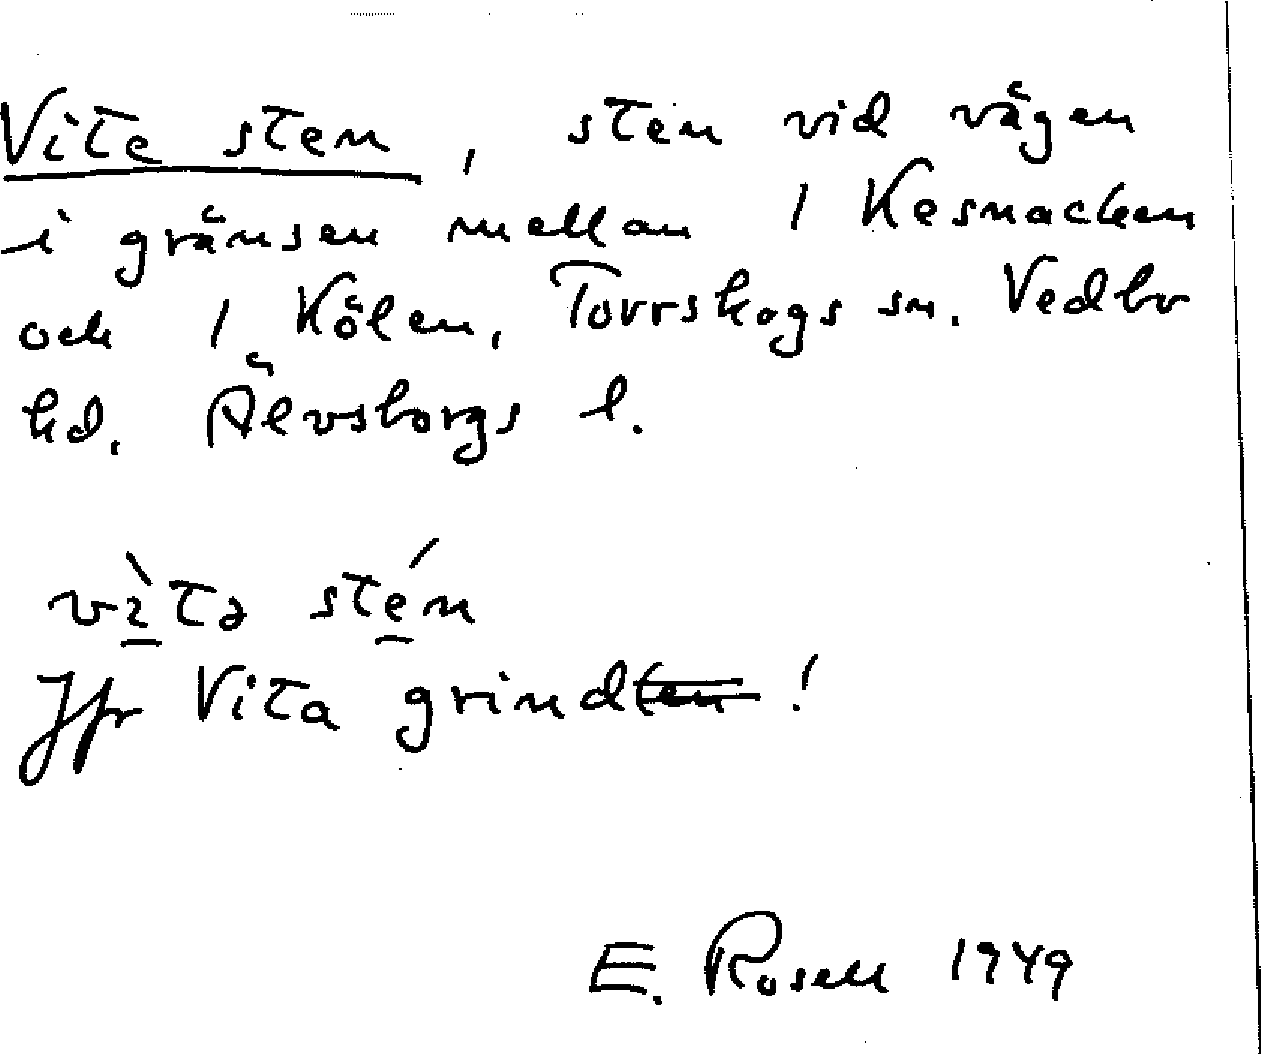 Vite sten, sten vid vägen
i gränsen mellan 1 Kesnacken
och 1 Kölen, Torrskogs sn. Vedbo
hd. Älvsborgs l.
vìtə stén
Jfr Vita grind!
E. Rosell 1949